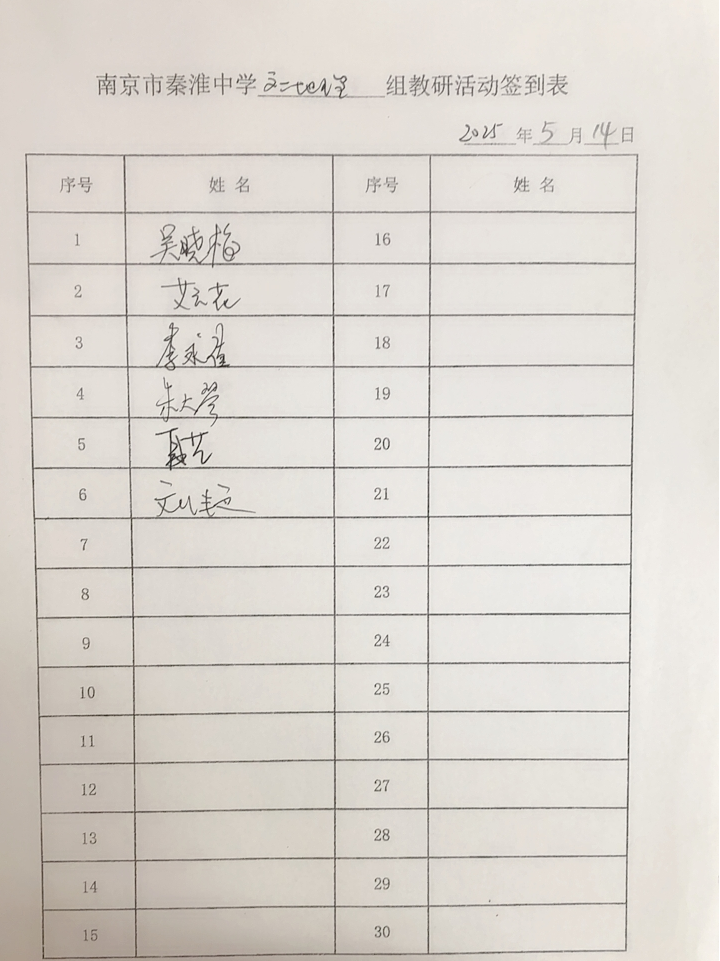 南京市秦淮中学高二地理组教研活动签到表
2025年5月14日
序号 姓名 序号 姓名
1 吴晓梅 16
2 艾云花 17
3 李永 18
4 朱大琴 19
5 聂艺 20
6 21
7 22
8 23
9 24
10 25
11 26
12 27
13 28
14 29
15 30